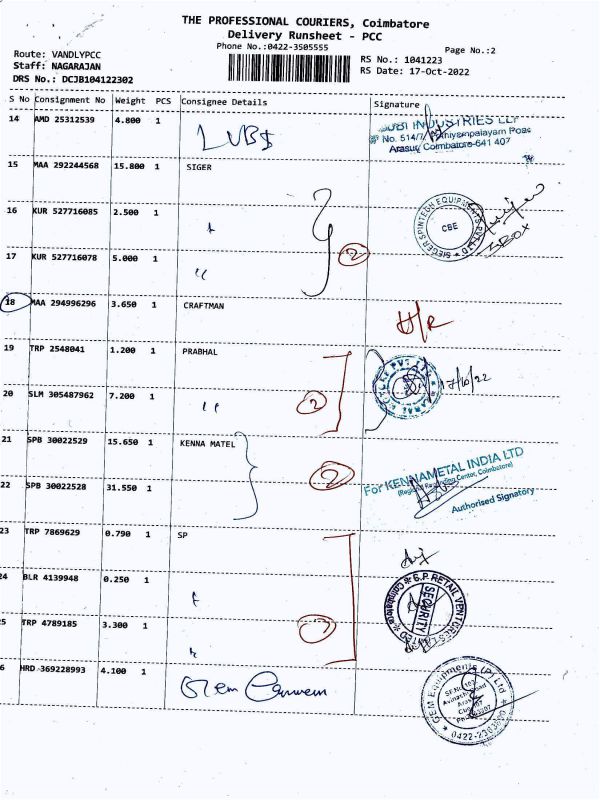 THE PROFESSIONAL COURIERS, Coimbatore
Delivery Runsheet - PCC
Phone No.:0422-3505555
Page No.:2
Route: VANDLYPCC
Staff: NAGARAJAN
DRS No.: DCJB104122302
RS No.: 1041223
RS Date: 17-Oct-2022
S No Consignment No Weight PCS Consignee Details Signature
14 AMD 25312539 4.800 1 LUBS
INDUSTRIES LLP
No. 514/7,
Arasur, Coimbatore-641 407
15 MAA 292244568 15.800 1 SIGER
16 KUR 527716085 2.500 1 "
SIEGER SPINTECH EQUIPMENTS PVT LTD
CBE
3 BOX
17 KUR 527716078 5.000 1 "
2
18 MAA 294996296 3.650 1 CRAFTMAN
H/R
19 TRP 2548041 1.200 1 PRABHAL
17/10/22
20 SLM 305487962 7.200 1 "
2
21 SPB 30022529 15.650 1 KENNA MATEL
2
For KENNAMETAL INDIA LTD
Center, Coimbatore)
Authorised Signatory
22 SPB 30022528 31.550 1
23 TRP 7869629 0.790 1 SP
24 BLR 4139948 0.250 1 "
S.P. RETAIL VENTURES LTD
SECURITY
Coimbatore
25 TRP 4789185 3.300 1 "
3
26 HRD 369228993 4.100 1 Gem
GEM Equipments (P) Ltd